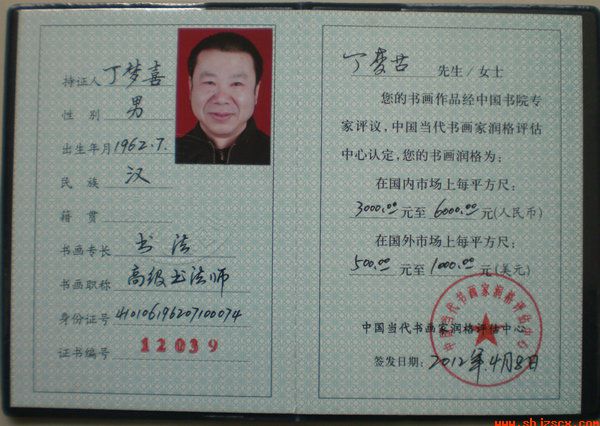 持证人 丁梦喜
性 别 男
出生年月 1962.7.
民 族 汉
籍 贯
书画专长 书 法
书画职称 高级书法师
身份证号 410106196207100074
证书编号 12039
丁梦喜 先生/女士
您的书画作品经中国书院专
家评议,中国当代书画家润格评估
中心认定,您的书画润格为:
在国内市场上每平方尺:
3000.00 元至 6000.00 元(人民币)
在国外市场上每平方尺:
500.00 元至 1000.00 元(美元)
中国当代书画家润格评估中心
中国当代书画家润格评估中心
签发日期: 2012年.4月8日
www.shizscx.com